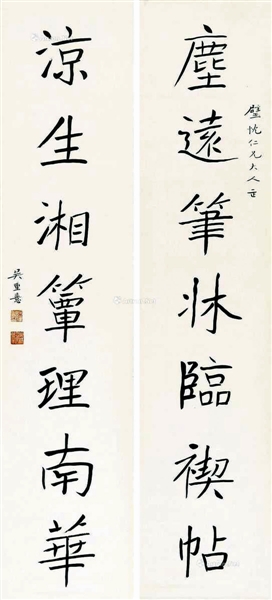 塵遠筆牀臨禊帖
璧忱仁兄大人正
涼生湘簟理南華
吳重憙